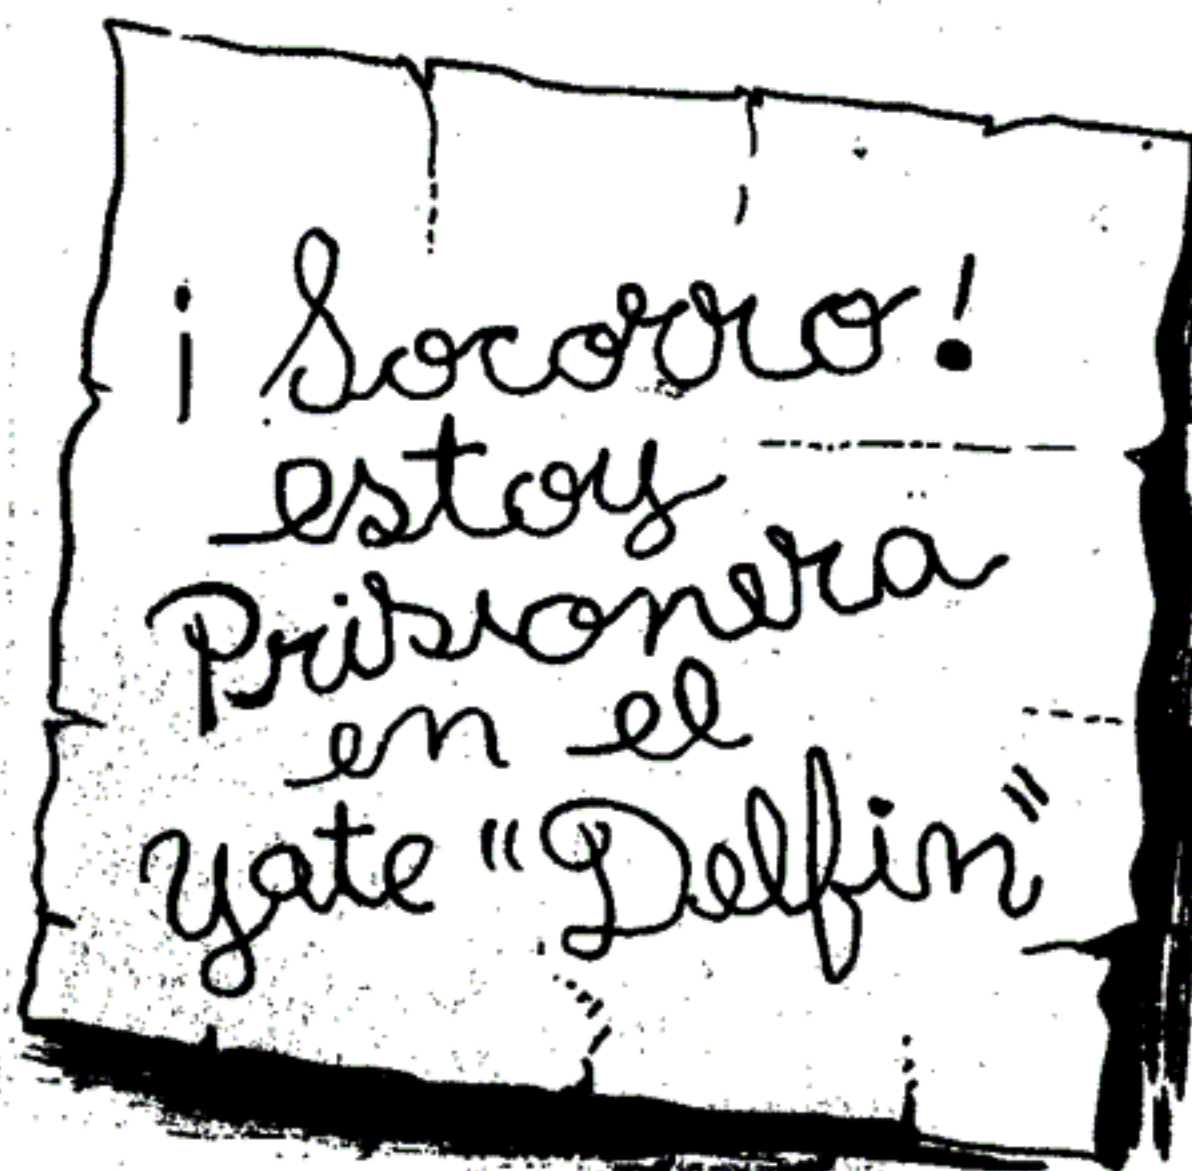 ¡Socorro!
estoy
Prisionera
en el
yate "Delfin"